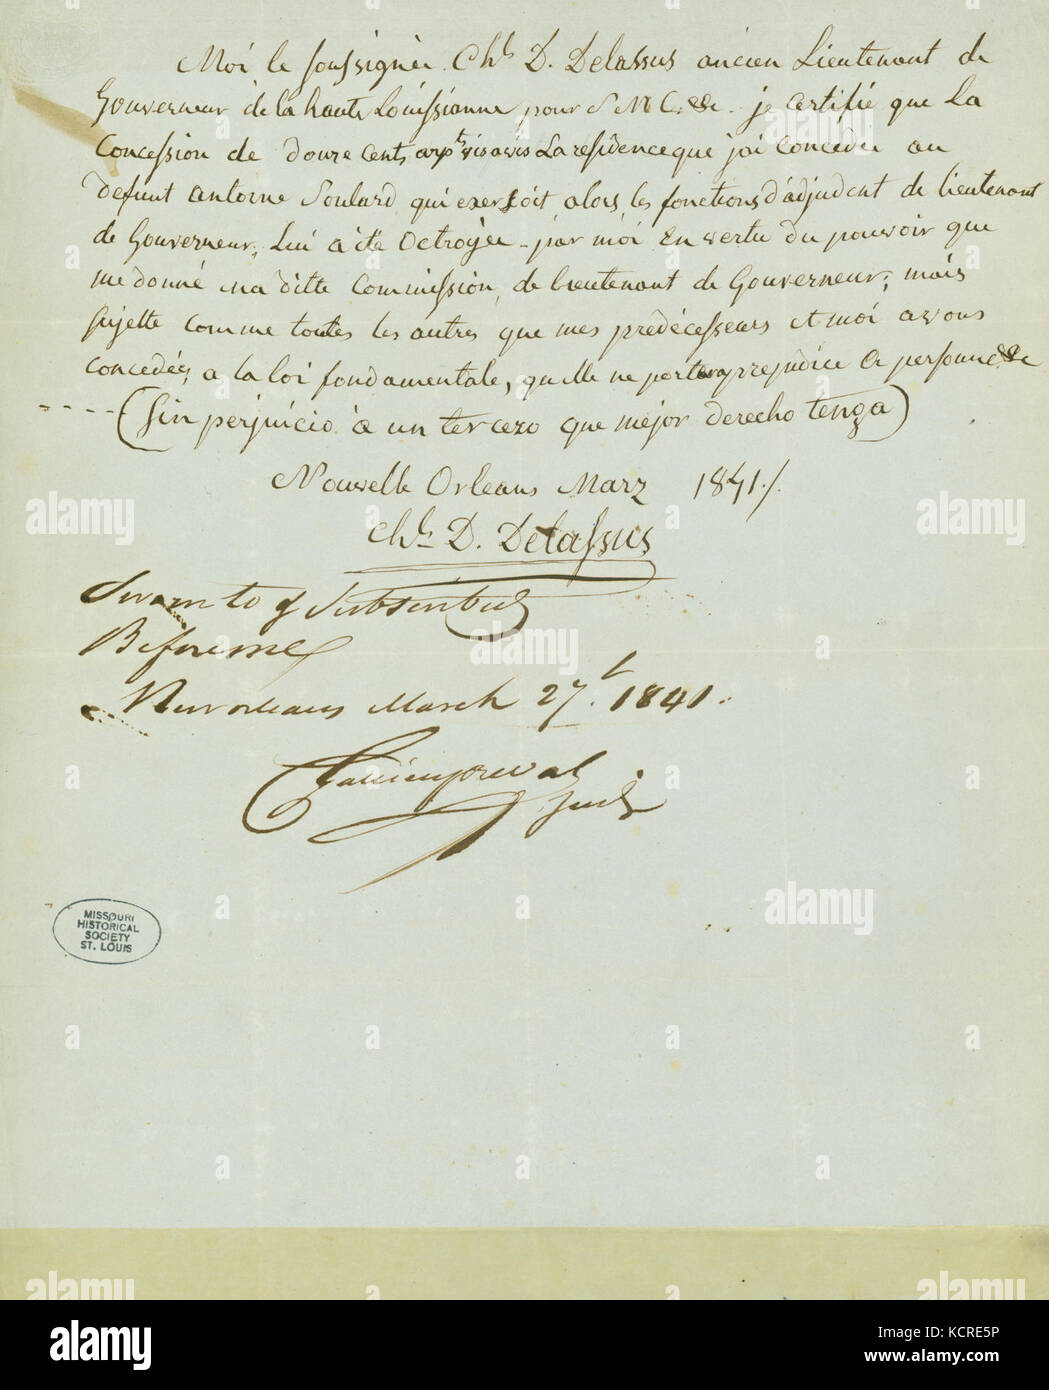 Moi le soussignée Chls D. Delassus ancien Lieutenant de
Gouverneur de la haute Louissianne, pour S M C. &c. je certifie que La
Concession de douze cents arpts vis a vis La residence que j'ai Concedée au
defunt antoine Soulard qui exersoit alors les fonctions d'adjudent de lieutenant
de Gouverneur, Lui a été Octroyée par moi En vertu du pouvoir que
me donné ma ditte Commission, de lieutenant de Gouverneur; mais
sujette comme toutes les autres que mes prédécesseurs et moi avons
concedés, a la loi fondamentale, qu'elle ne porte prejudice a personne &c
---- (Sin perjuicio à un tercero que mejor derecho tenga)
Nouvelle Orleans Marz 1841./.
Chls D. Delassus
Sworn to & Subscribed
Before me
New orleans March 27. 1841.
MISSOURI
HISTORICAL
SOCIETY
ST. LOUIS
alamy
a
alamy stock photo
KCRE5P
www.alamy.com